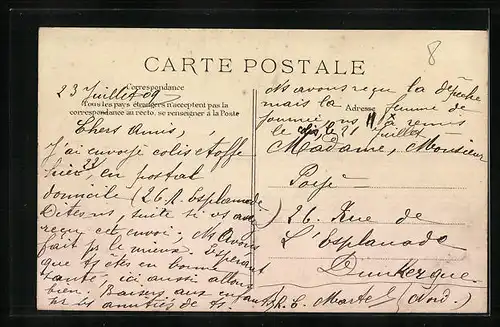 8
CARTE POSTALE
Correspondance
23 Juillet 09
Tous les pays étrangers n'acceptent pas la
correspondance au recto, se renseigner à la Poste
Chers Amis,
J'ai envoyé colis étoffe
hier 22, en postal
domicile (26 r. Esplanade)
Dites ns, suite si vs avez
reçu cet envoi. Ns avons
fait ps le mieux. Espérant
que ts êtes en bonne
santé, ici aussi allons
bien. Baisers aux enfants
et amitiés de ts.
Ns avons reçu la dépêche
mais la femme de
Adresse
journée ns l'a remis
le 21 Juillet
Madame, Monsieur
26, Rue de
L'Esplanade
Dunkerque
(Nord)